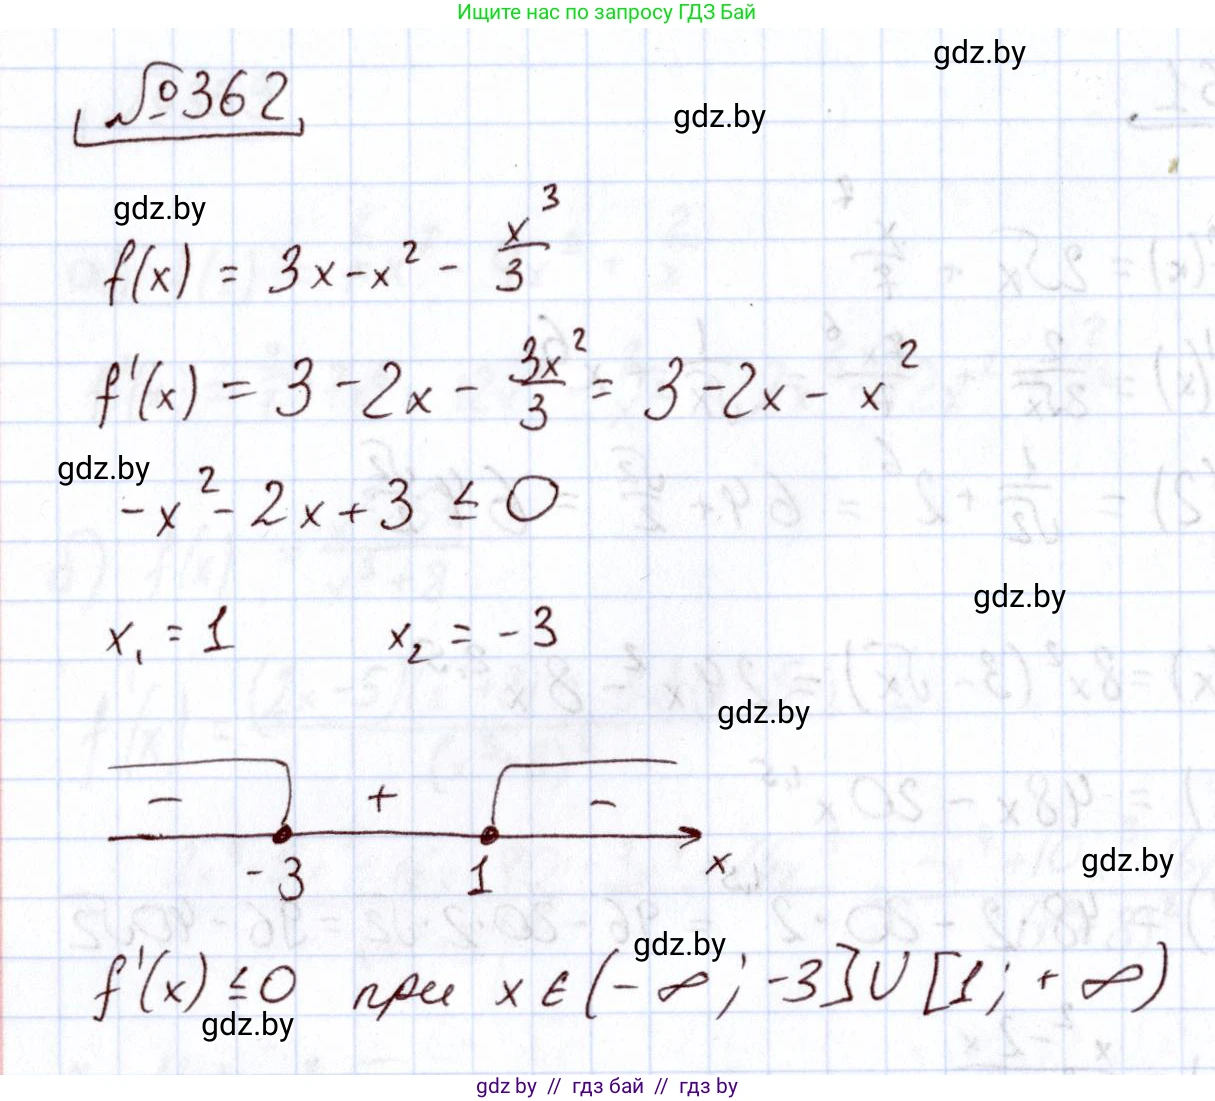 Ищите нас по запросу ГДЗ Бай
gdz.by
№362
gdz.by
gdz.by
f(x) = 3x - x² - x³/3
f'(x) = 3 - 2x - 3x²/3 = 3 - 2x - x²
gdz.by
-x² - 2x + 3 ≤ 0
gdz.by
x₁ = 1 x₂ = -3
gdz.by
- + -
-3 1 x
gdz.by
gdz.by
f'(x) ≤ 0 при x ∈ (-∞; -3] ∪ [1; +∞)
gdz.by
gdz.by // гдз бай // гдз by